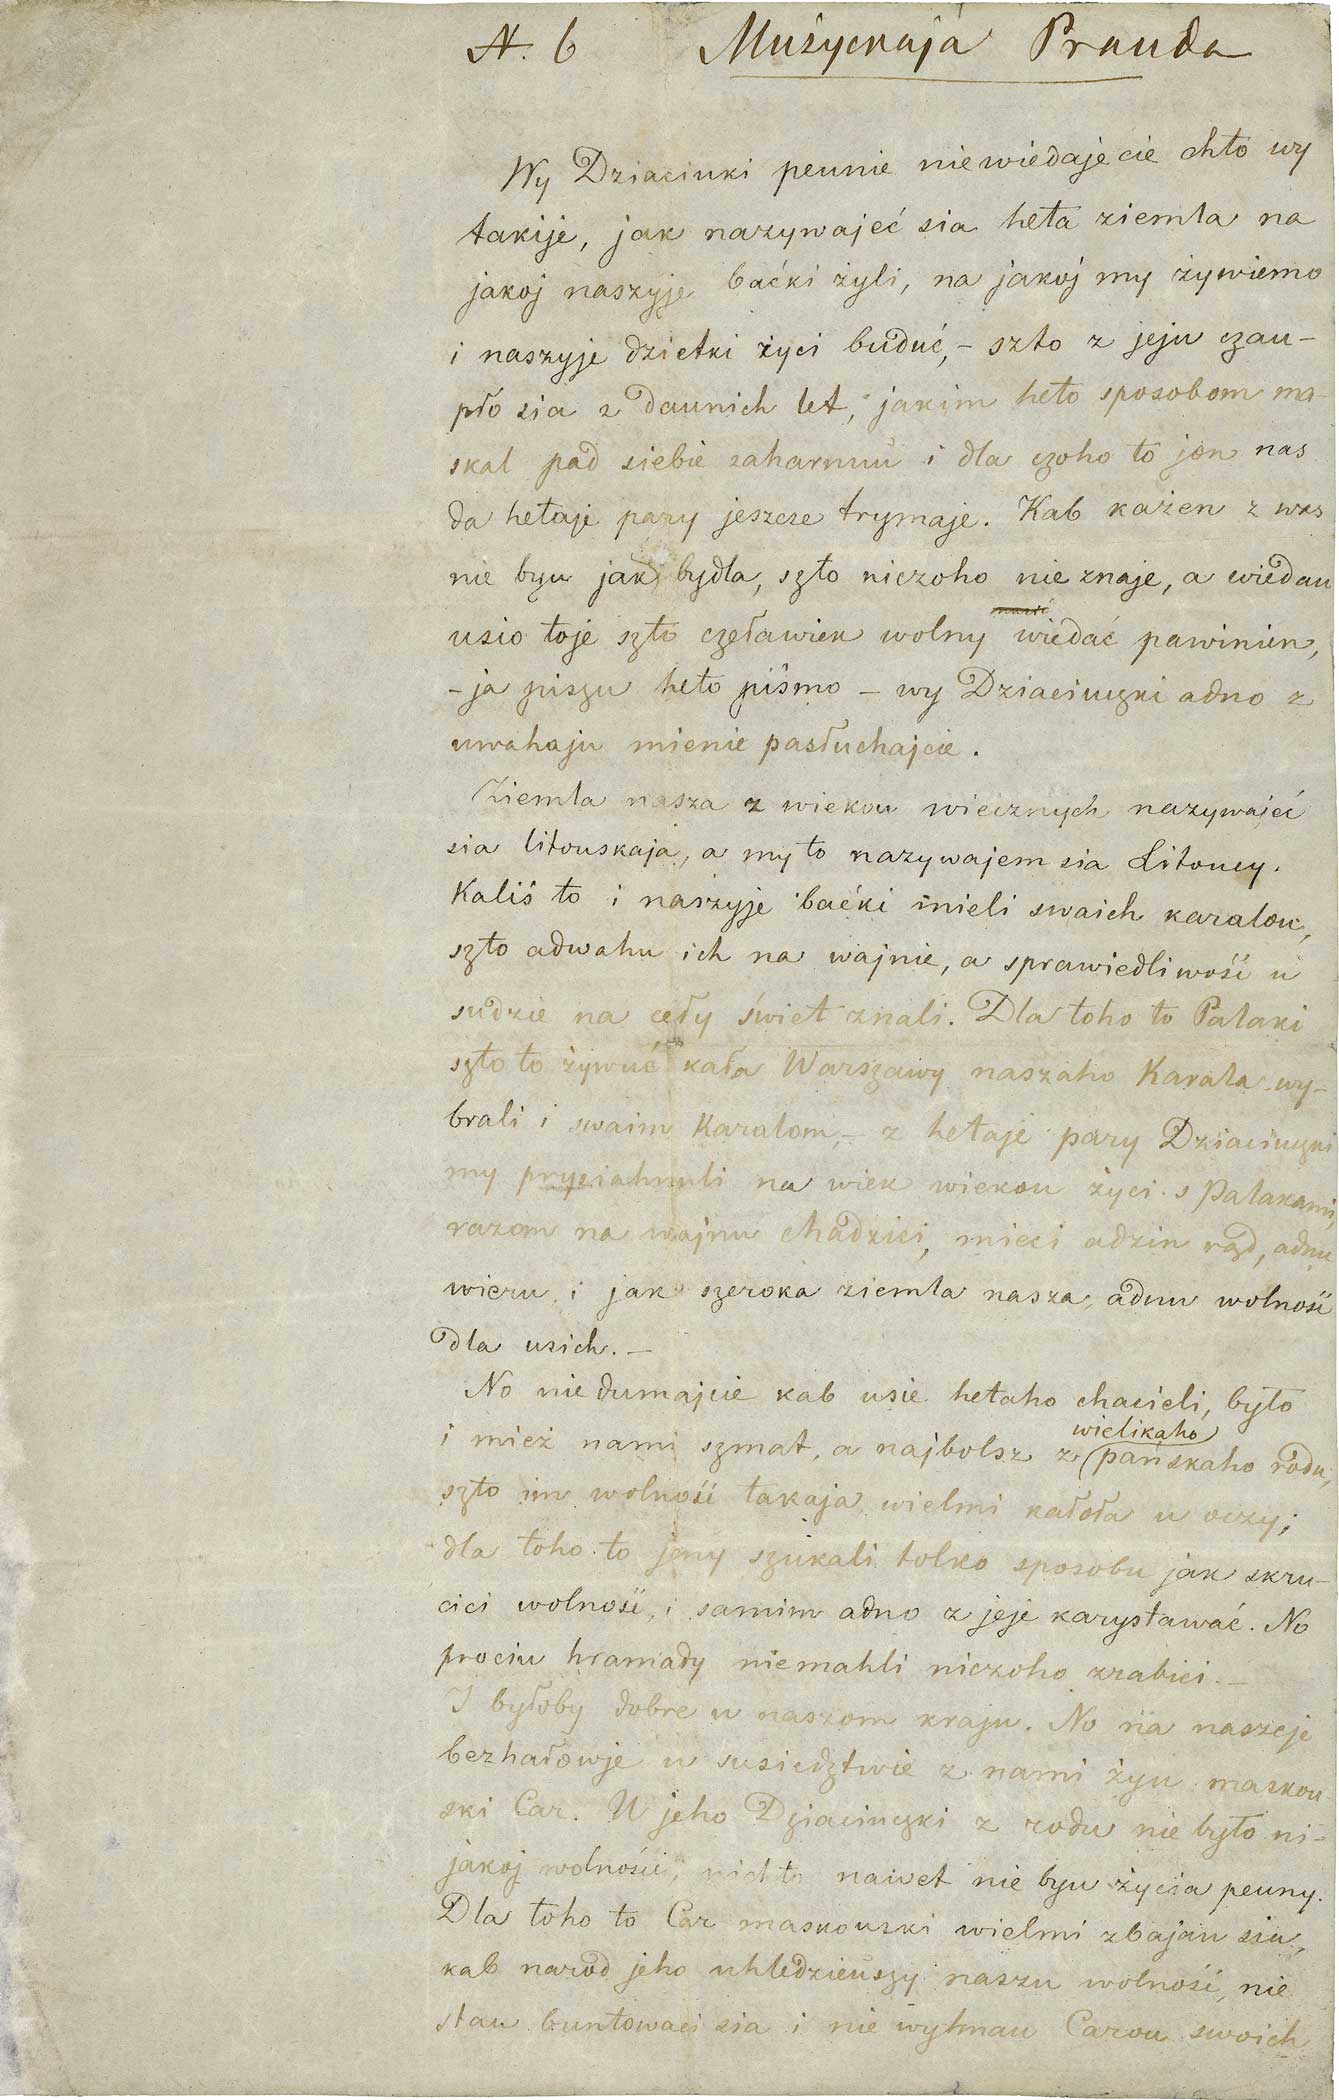 N. 6 Mużyckaja Prauda
Wy Dziaciuki peunie niewiedajecie chto wy
takije, jak nazywajeć sia heta ziemla na
jakoj naszyje baćki żyli, na jakoj my żywiemo
i naszyje dzietki życi buduć, – szto z jeju czau-
pło sia z daunich let, jakim heto sposobom ma-
skal pad siebie zaharnuu i dla czoho to jon nas
da hetaje pary jeszcze trymaje. Kab każen z was
nie byu jak bydla, szto niczoho nie znaje, a wiedau
usio toje szto czeławiek wolny wiedać pawinien,
– ja piszu heto piśmo – wy Dziaciuczki adno z
uwahaju mienie pasłuchajcie.
Ziemla nasza z wiekou wiecznych nazywajeć
sia litouskaja, a my to nazywajem sia Litoucy.
Kaliś to i naszyje baćki mieli swaich karalou,
szto adwahu ich na wajnie, a sprawiedliwość u
sudzie na cęły świet znali. Dla toho to Palaki
szto to żywuć kała Warszawy naszaho Karala wy-
brali i swaim Karalom, – z hetaje pary Dziaciuczki
my prysiahnuli na wiek wiekou życi s Palakami
razom na wajnu chadzici, mieci adzin rząd, adnu
wieru i jak szeroka ziemla nasza, adnu wolność
dla usich. –
No nie dumajcie kab usie hetaho chacieli, było
i mież nami szmat, a najbolsz z wielikaho pańskaho rodu,
szto im wolność takaja wielmi kałoła u oczy;
dla toho to jeny szukali tolko sposobu jak skru-
cici wolność, i samim adno z jeje karystawać. No
prociu hramady niemahli niczoho zrabici. –
I byłoby dobre u naszom kraju. No na naszeje
bezhałowje u susiedztwie z nami żyu maskou
ski Car. U jeho Dziaciuczki z rodu nie było ni-
jakoj wolności, nichto nawet nie byu życia peuny.
Dla toho to Car maskouski wielmi zbajau sia,
kab narod jeho uhledzieuszy naszu wolność, nie
stau buntowaci sia i nie wyhnau Carou swoich